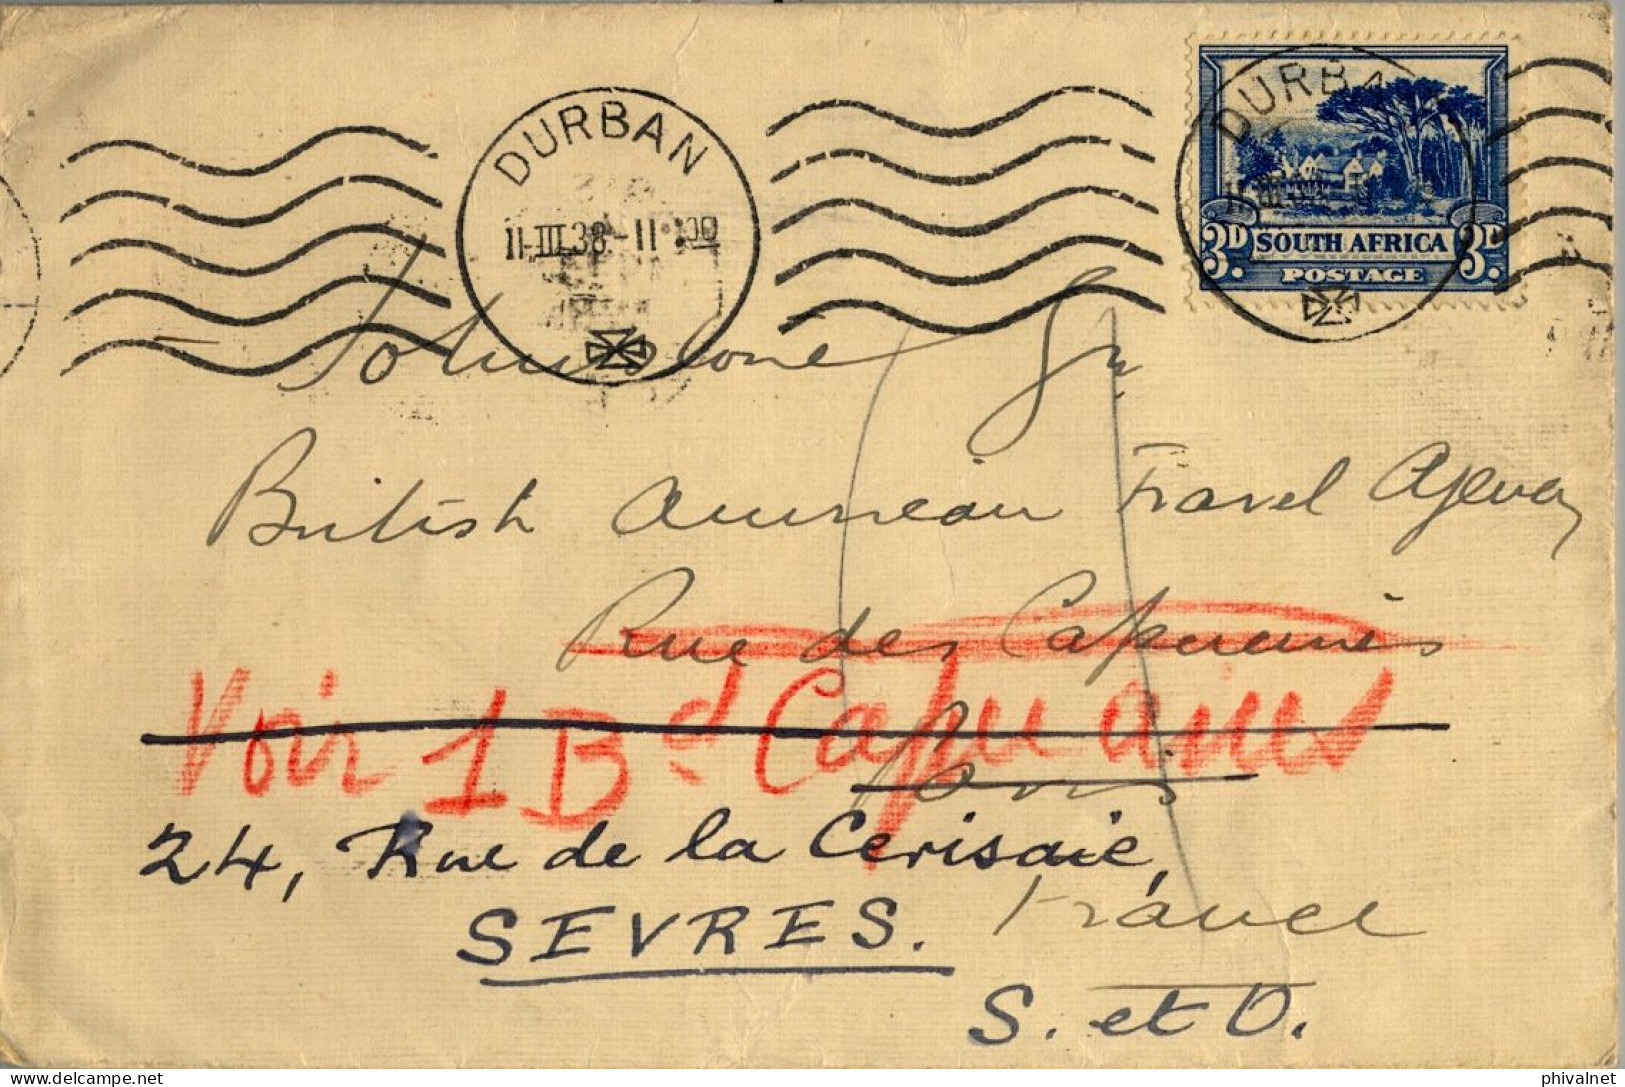 DURBAN
11.III.38-11
DURBA
3D. SOUTH AFRICA 3D.
POSTAGE
Johnstone
British American Travel Agency
Rue des Capucines
Voir 1 Bd Capucines
Paris
24, Rue de la Cerisaie,
SEVRES. France
S. et O.
phivalnet